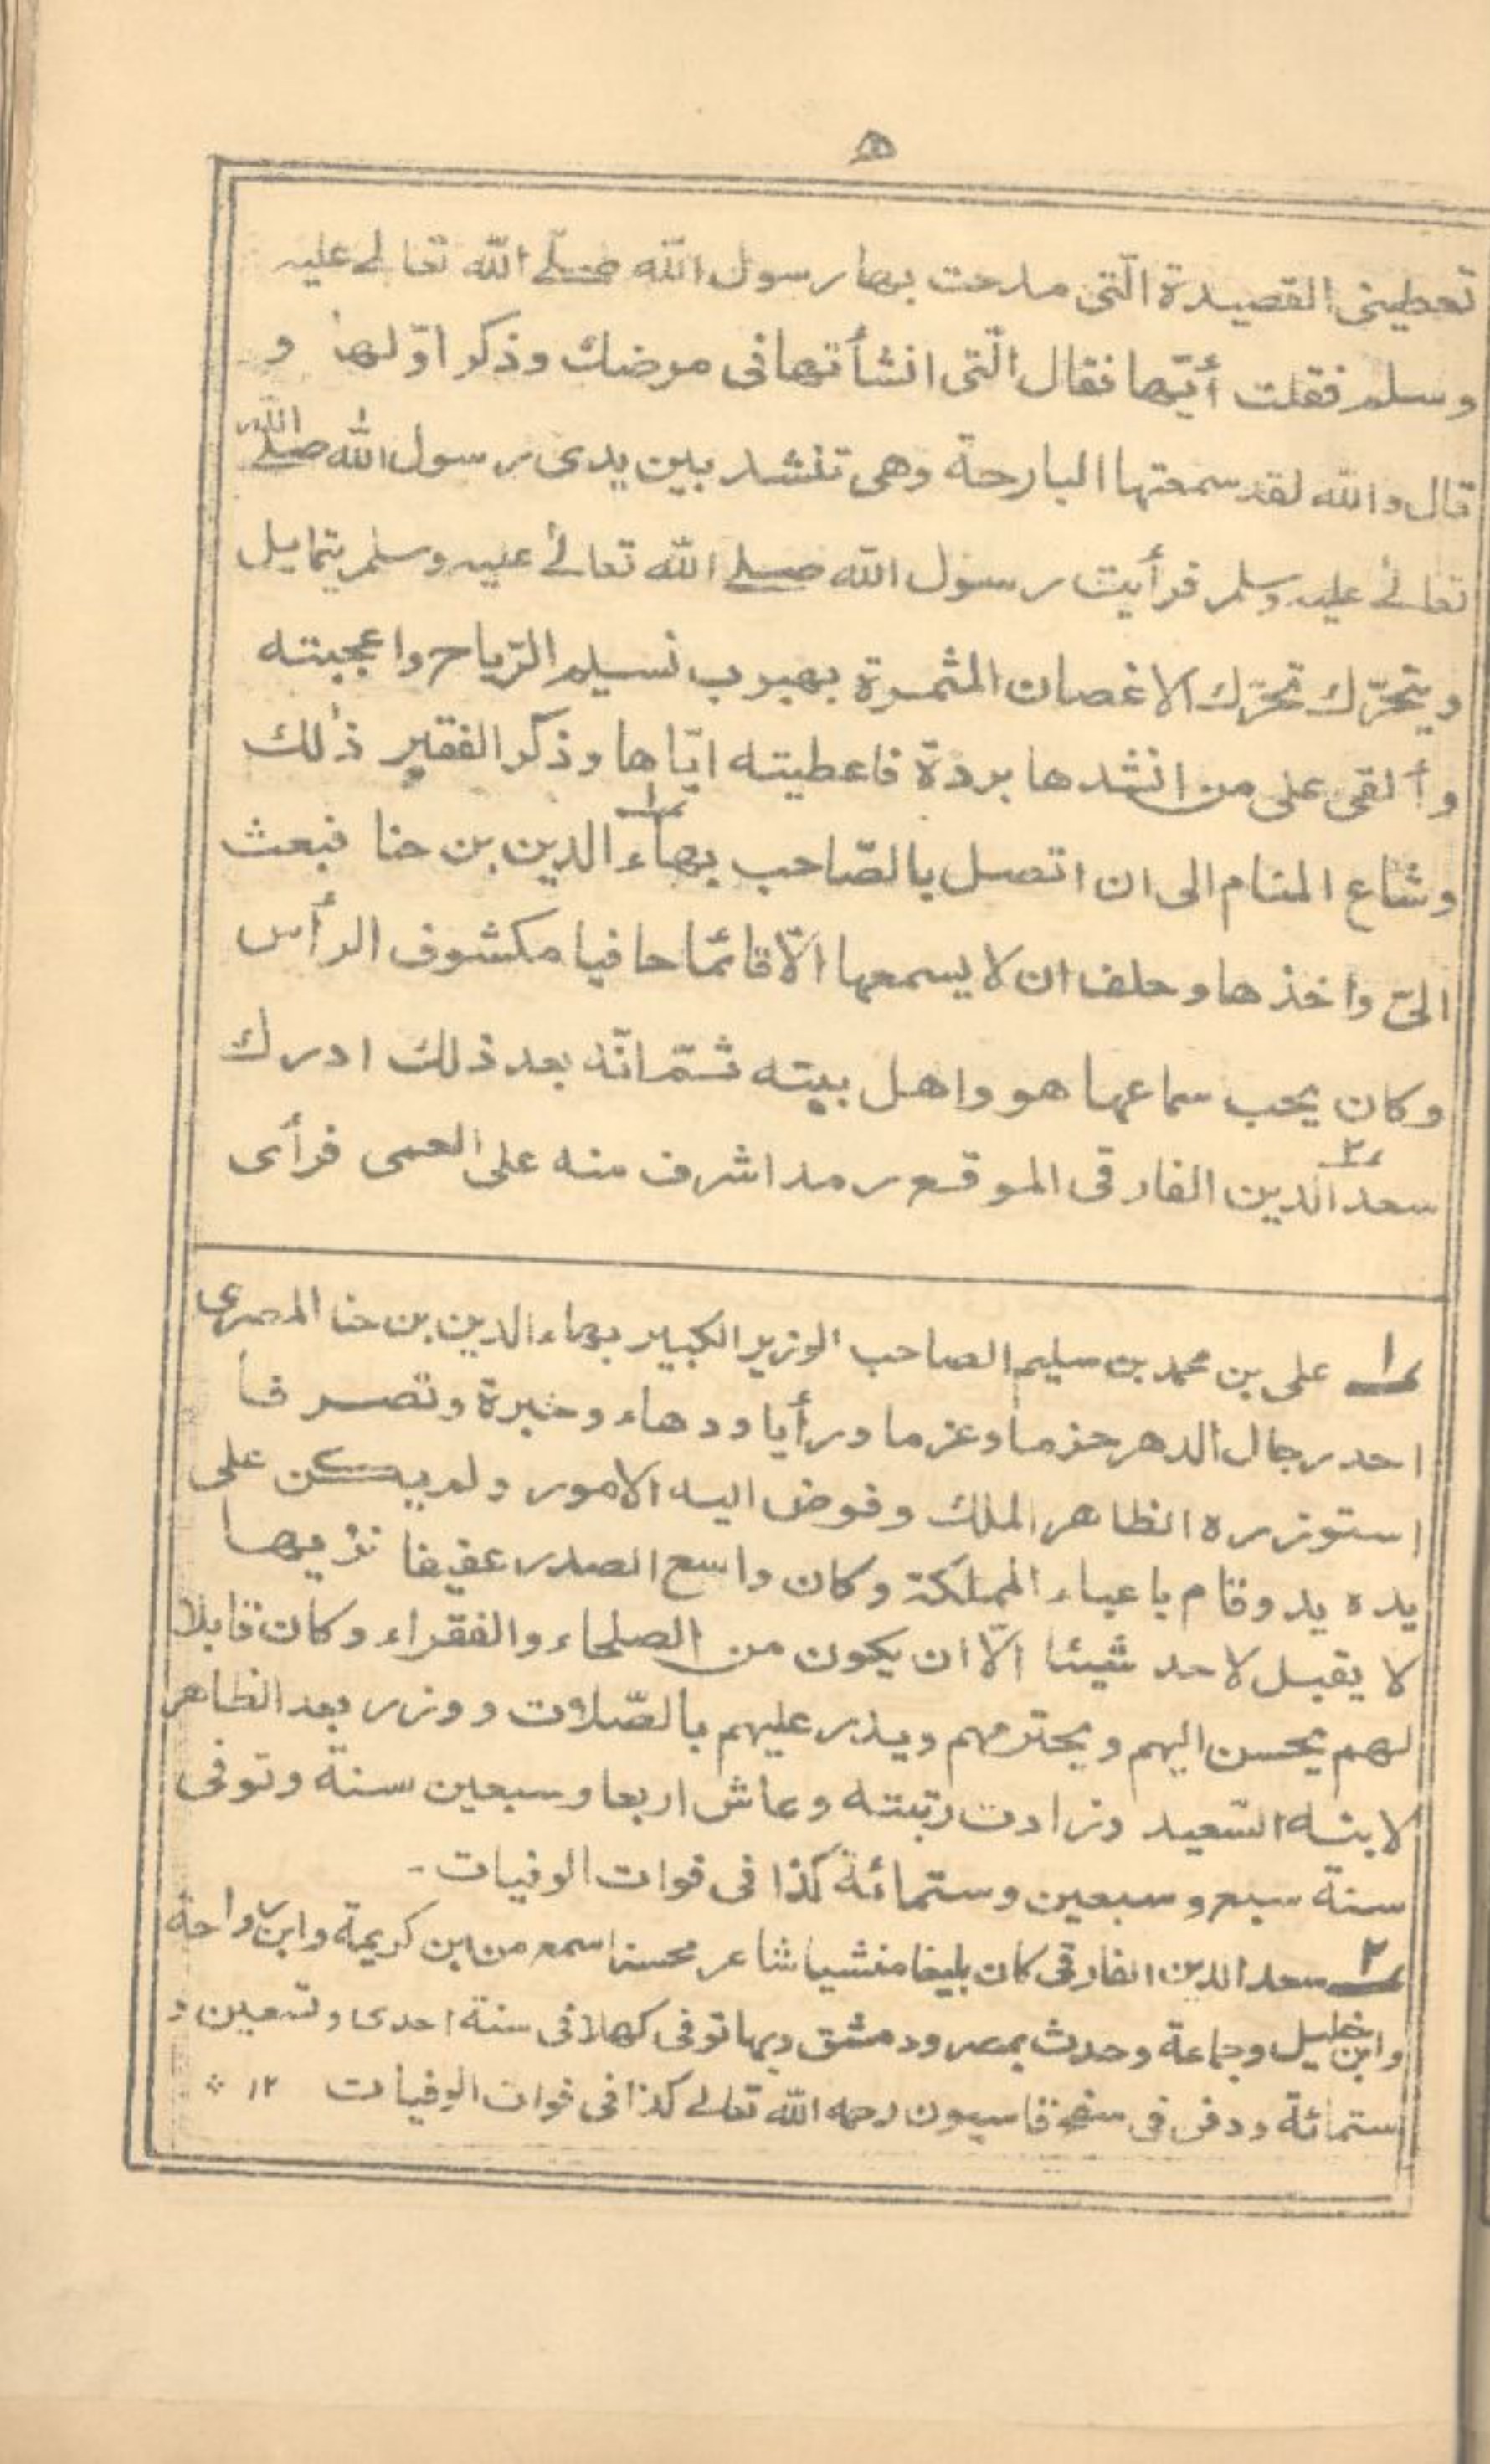 ه
تعطینی القصیدة الّتی مدحت بها رسول اللّه صلی اللّه تعالے علیہ
وسلم فقلت أیّها فقال الّتی انشأتها فی مرضك وذکر اوّلها و
قال واللّه لقد سمعتها البارحة وهی تنشد بین یدی رسول اللّه صلی اللّه
تعالیٰ علیہ وسلم فرأیت رسول اللّه صلی اللّه تعالیٰ علیہ وسلم یتمایل
ویتحرّك تحرّك الاغصان المثمرة بهبوب نسیم الرّیاح واعجبته
وألقی علی من انشدها بردة فاعطیته ایّاها وذکر الفقیر ذٰلك
وشاع المنام الی ان اتصل بالصّاحب بهاء الدین بن حنا فبعث ١
الیّ واخذها وحلف ان لا یسمعها الّا قائما حافیا مکشوف الرأس
وکان یحب سماعها هو واهل بیته ثمّ انّه بعد ذلك ادرك
سعد الدین الفارقی الموقع رمد اشرف منه علی العمی فرأی ٢
١ علی بن محمد بن سلیم الصاحب الوزیر الکبیر بهاء الدین بن حنا المصری
احد رجال الدهر حزما وعزما ورأیا ودهاء وخبرة وتصرفا
استوزره الظاهر الملك وفوض الیه الامور ولم یکن علی
یده ید وقام باعباء المملکة وکان واسع الصدر عفیفا نزیها
لا یقبل لاحد شیئا الّا ان یکون من الصلحاء والفقراء وکان قابلا
لهم یحسن الیهم ویحترمهم ویدر علیهم بالصّلات ووزر بعد الظاهر
لابنه السّعید وزادت رتبته وعاش اربعا وسبعین سنة وتوفی
سنة سبع وسبعین وستمائة کذا فی فوات الوفیات -
٢ سعد الدین الفارقی کان بلیغا منشیا شاعر محسنا سمع من ابن کریمة وابن رواحة
وابن خلیل وجماعة وحدث بمصر ودمشق وبها توفی کهلا فی سنة احدی وتسعین و
ستمائة ودفن فی سفح قاسیون رحمه اللّه تعالے کذا فی فوات الوفیات ١٢